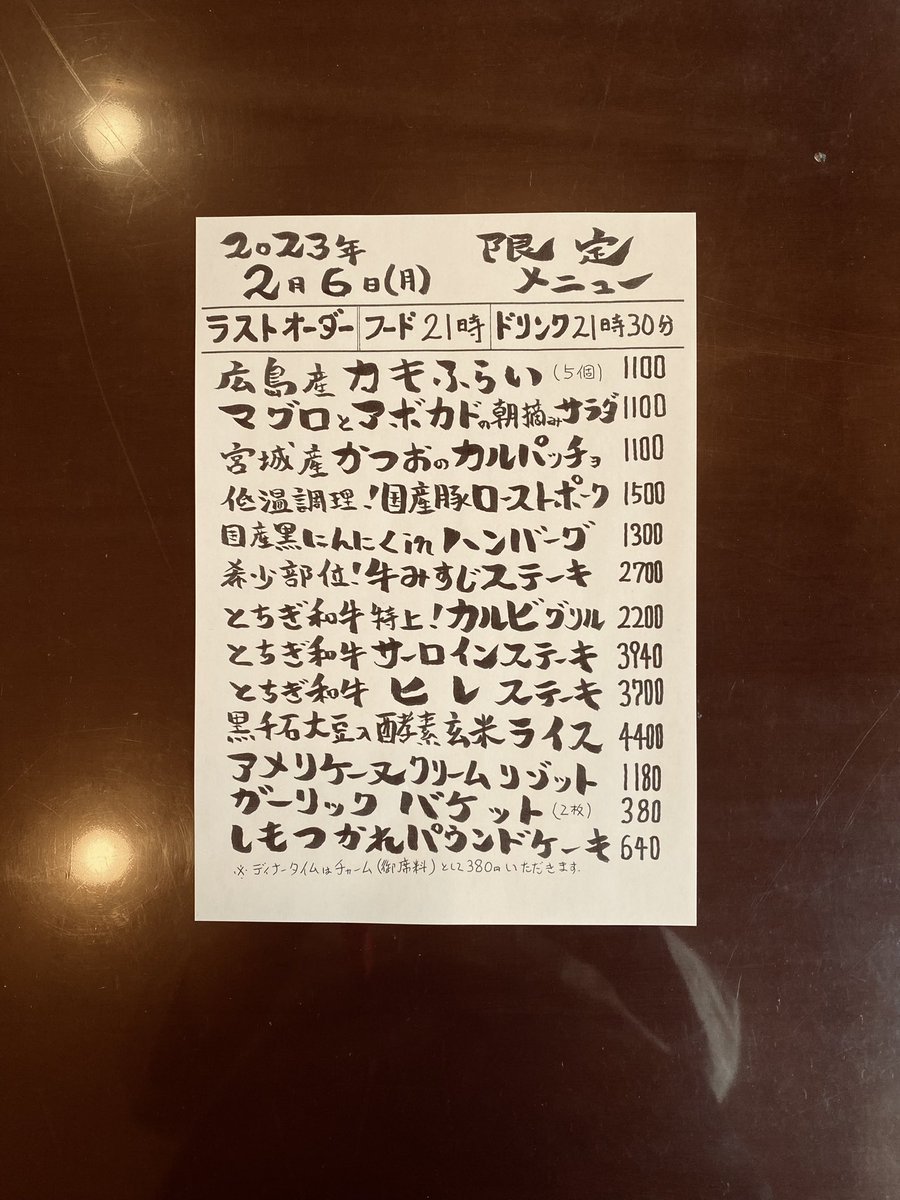 2023年 限定
2月6日(月) メニュー
ラストオーダー フード21時 ドリンク21時30分
広島産カキふらい(5個) 1100
マグロとアボカドの朝摘みサラダ 1100
宮城産かつおのカルパッチョ 1100
低温調理!国産豚ローストポーク 1500
国産黒にんにくinハンバーグ 1300
希少部位!牛みすじステーキ 2700
とちぎ和牛特上!カルビグリル 2200
とちぎ和牛サーロインステーキ 3940
とちぎ和牛ヒレステーキ 3700
黒千石大豆入酵素玄米ライス 4400
アメリケーヌクリームリゾット 1180
ガーリックバケット(2枚) 380
しもつかれパウンドケーキ 640
※ディナータイムはチャーム(御席料)として380円いただきます。